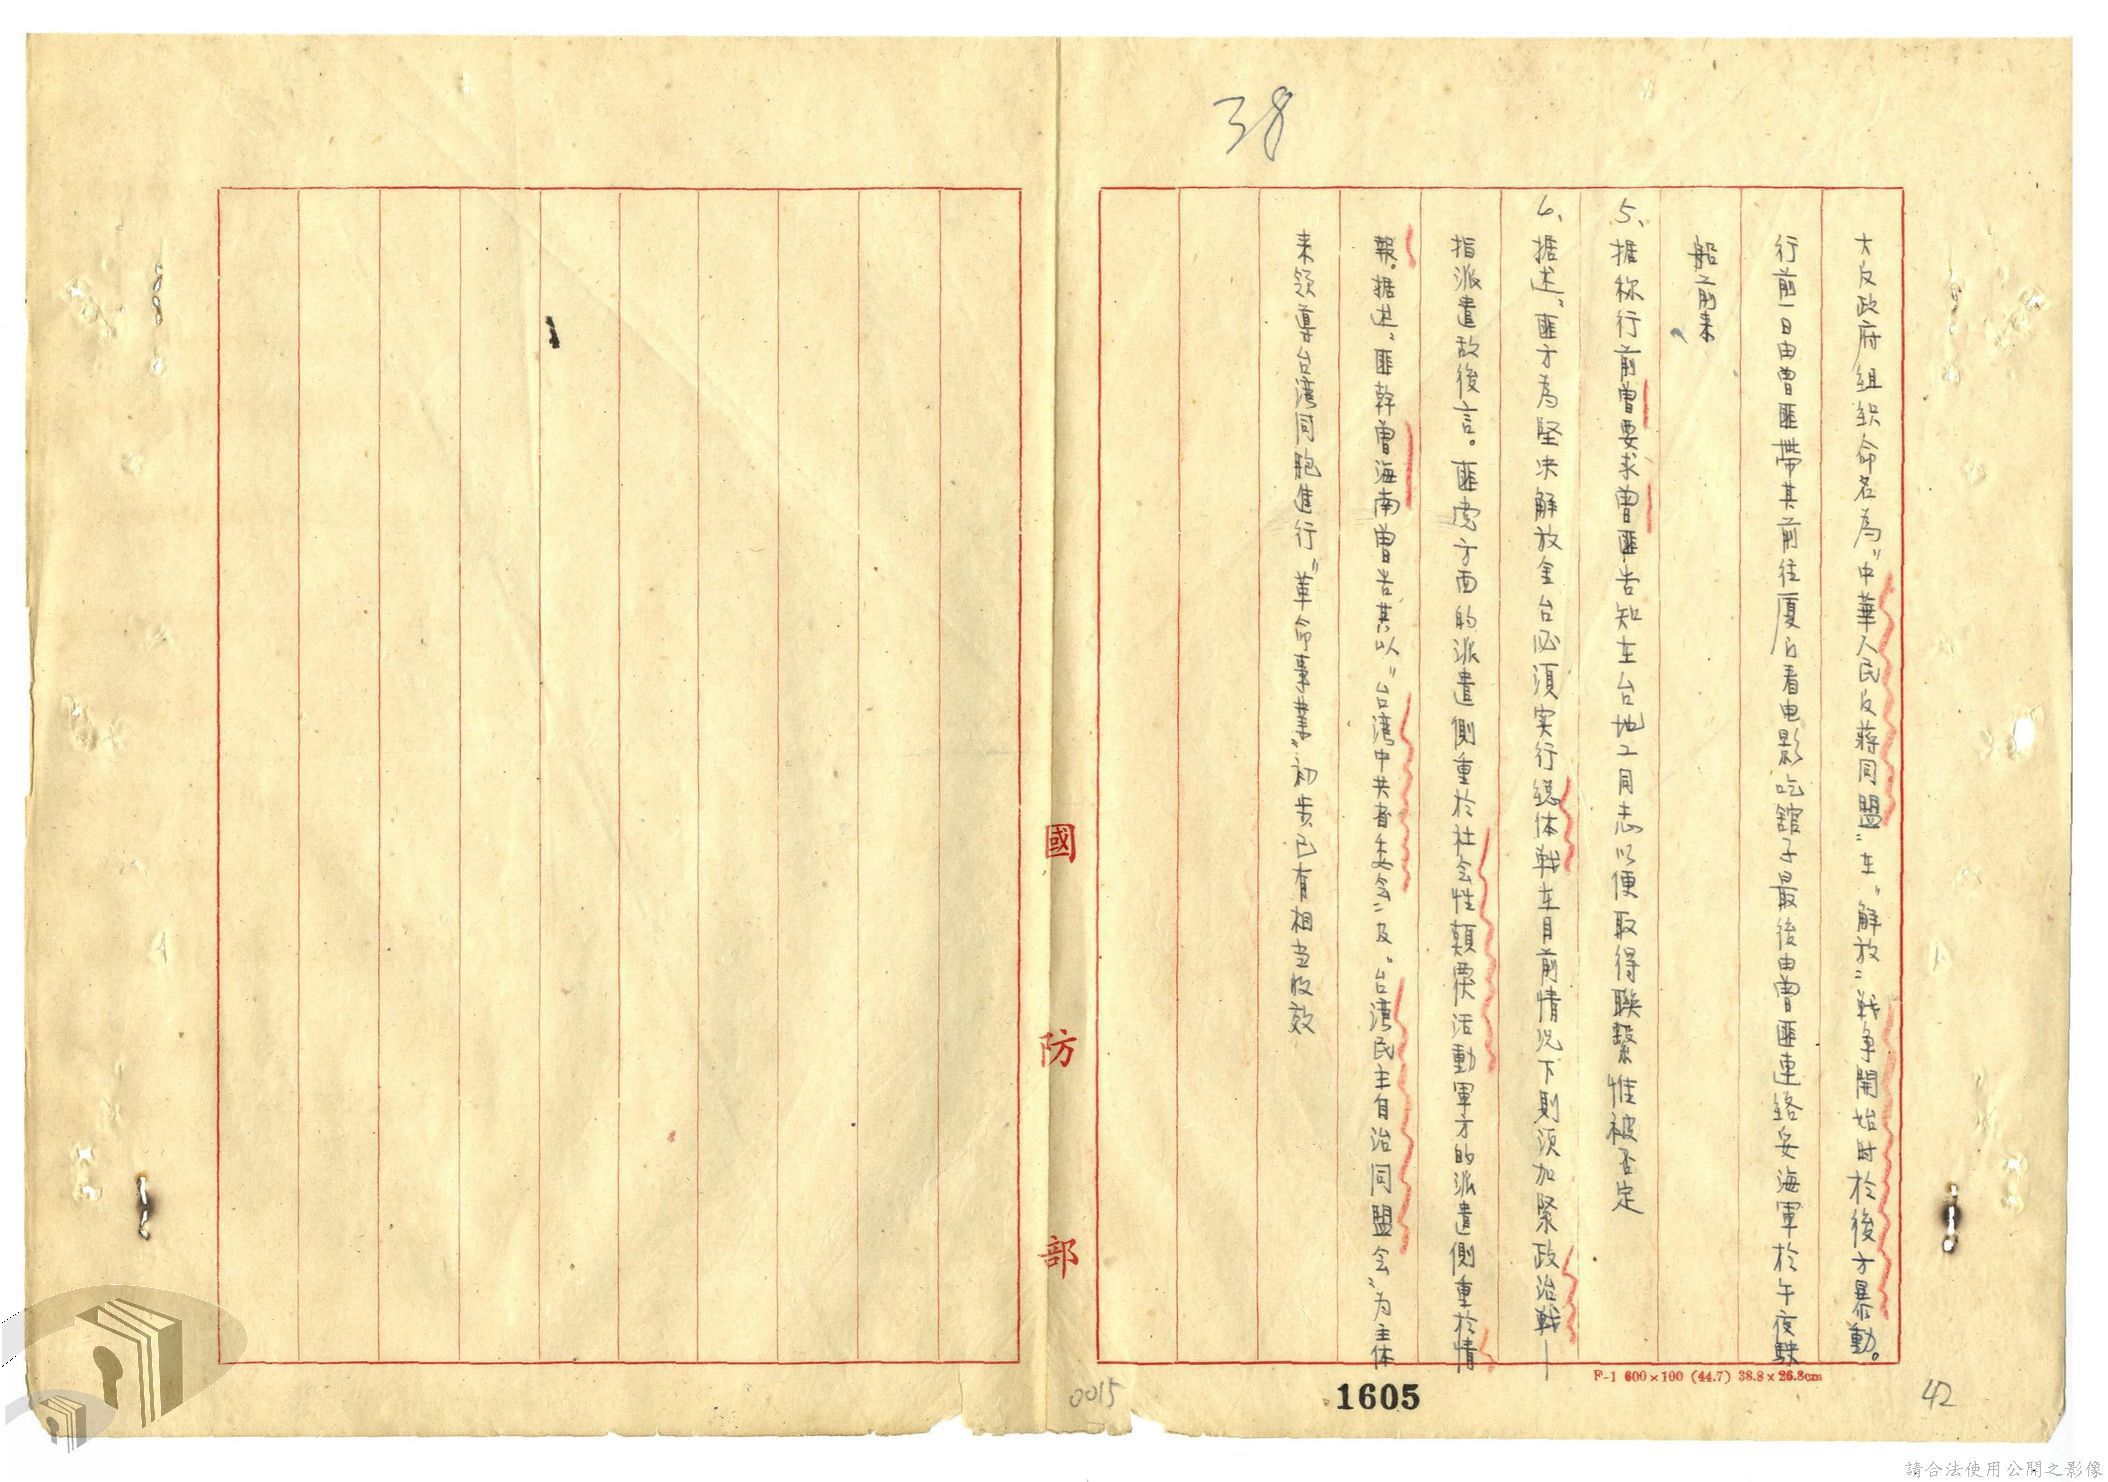 38
大反政府組织命名為"中華人民反蔣同盟"在"解放"战争開始时於後方暴動。
行前一日由曾匪帶其前往厦门看电影吃舘子最後由曾匪連络妥海軍於午夜駛
船前来、
5、据称行前曾要求曾匪告知在台地工同志以便取得联繫惟被否定
6、据述、匪方為堅决解放金台必須实行總体戰在目前情况下則须加緊政治戰—
指派遣敌後言。匪党方面的派遣側重於社会性顛覆活動軍方的派遣側重於情
報。据述、匪幹曾海南曾告其以"台湾中共省委会"及"台湾民主自治同盟会"为主体
来領導台湾同胞進行"革命事業"初步已有相当收效
國防部
F-1 600×100 (44.7) 38.8×26.8cm
0015
1605
42
請合法使用公開之影像